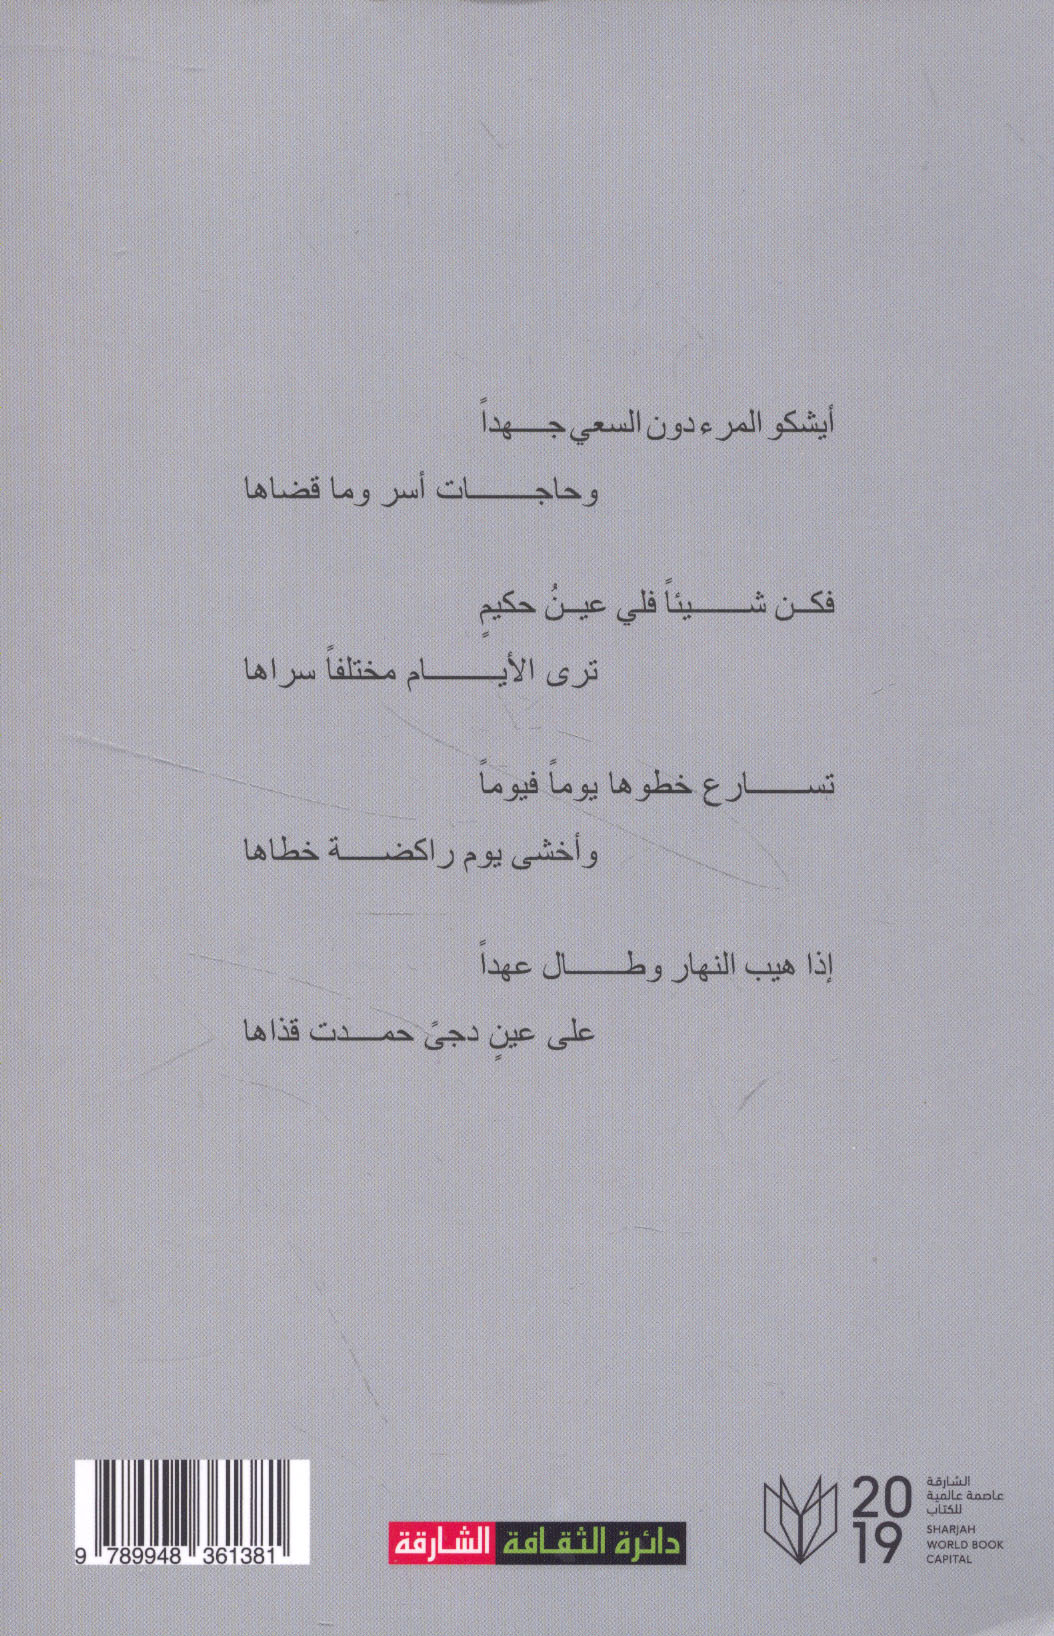 أيشكو المرء دون السعي جهداً
وحاجات أسر وما قضاها
فكن شيئاً فلي عينُ حكيمٍ
ترى الأيام مختلفاً سراها
تسارع خطوها يوماً فيوماً
وأخشى يوم راكضة خطاها
إذا هيب النهار وطال عهداً
على عينٍ دجىً حمدت قذاها
9 789948 361381
دائرة الثقافة الشارقة
2019
الشارقة
عاصمة عالمية
للكتاب
SHARJAH
WORLD BOOK
CAPITAL